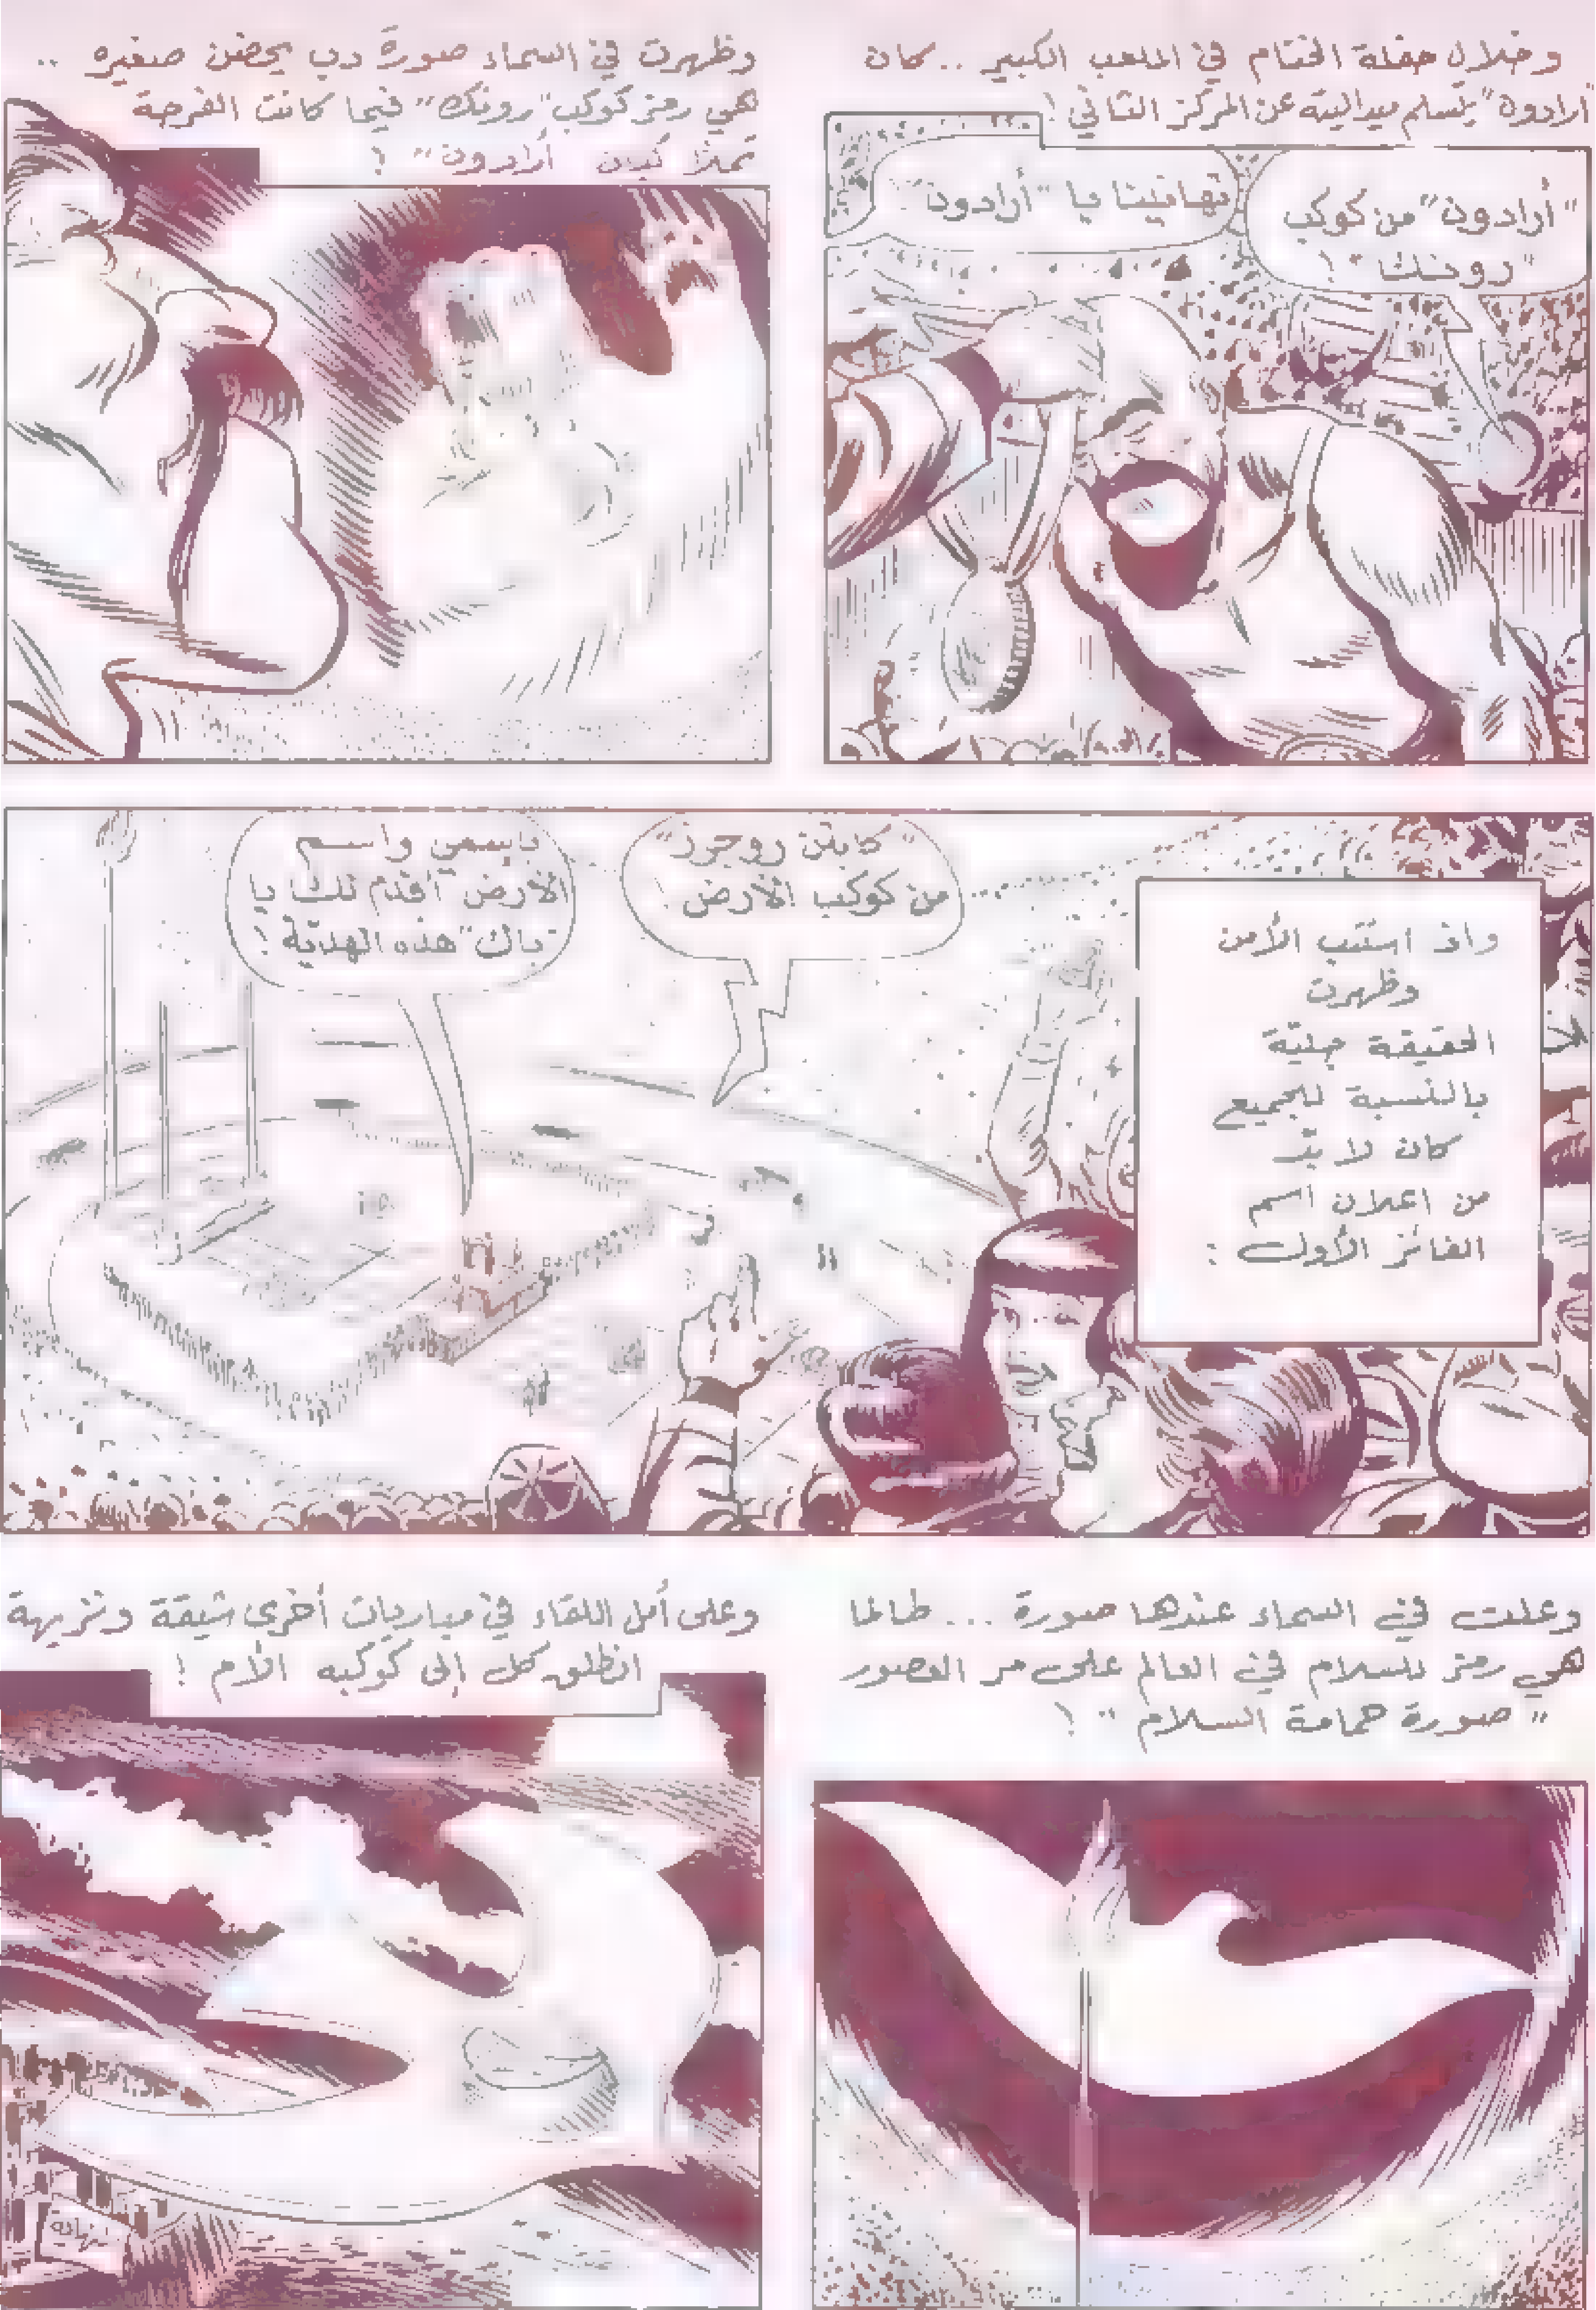 وخلال حفلة الختام في الملعب الكبير .. كان
"أرادون" يتسلم ميداليته عن المركز الثاني !
"أرادون" من كوكب
"رونك" !
تهانينا يا "أرادون"
وظهرت في السماء صورة دب يحضن صغيره ..
هي رمز كوكب "رونك" فيما كانت الفرحة
تملأ كيان "أرادون" !
واذ استتب الأمن
وظهرت
الحقيقة جليّة
بالنسبة للجميع
كان لا بدّ
من اعلان اسم
الفائز الأول :
"كابتن روجرز"
من كوكب الأرض !
باسمي واسم
الأرض أقدم لك يا
"باك" هذه الهديّة !
وعلت في السماء عندها صورة ... طالما
هي رمز للسلام في العالم على مر العصور
"صورة حمامة السلام" !
وعلى أمل اللقاء في مباريات أخرى شيقة ونزيهة
انطلق كل إلى كوكبه الأم !
نهاية